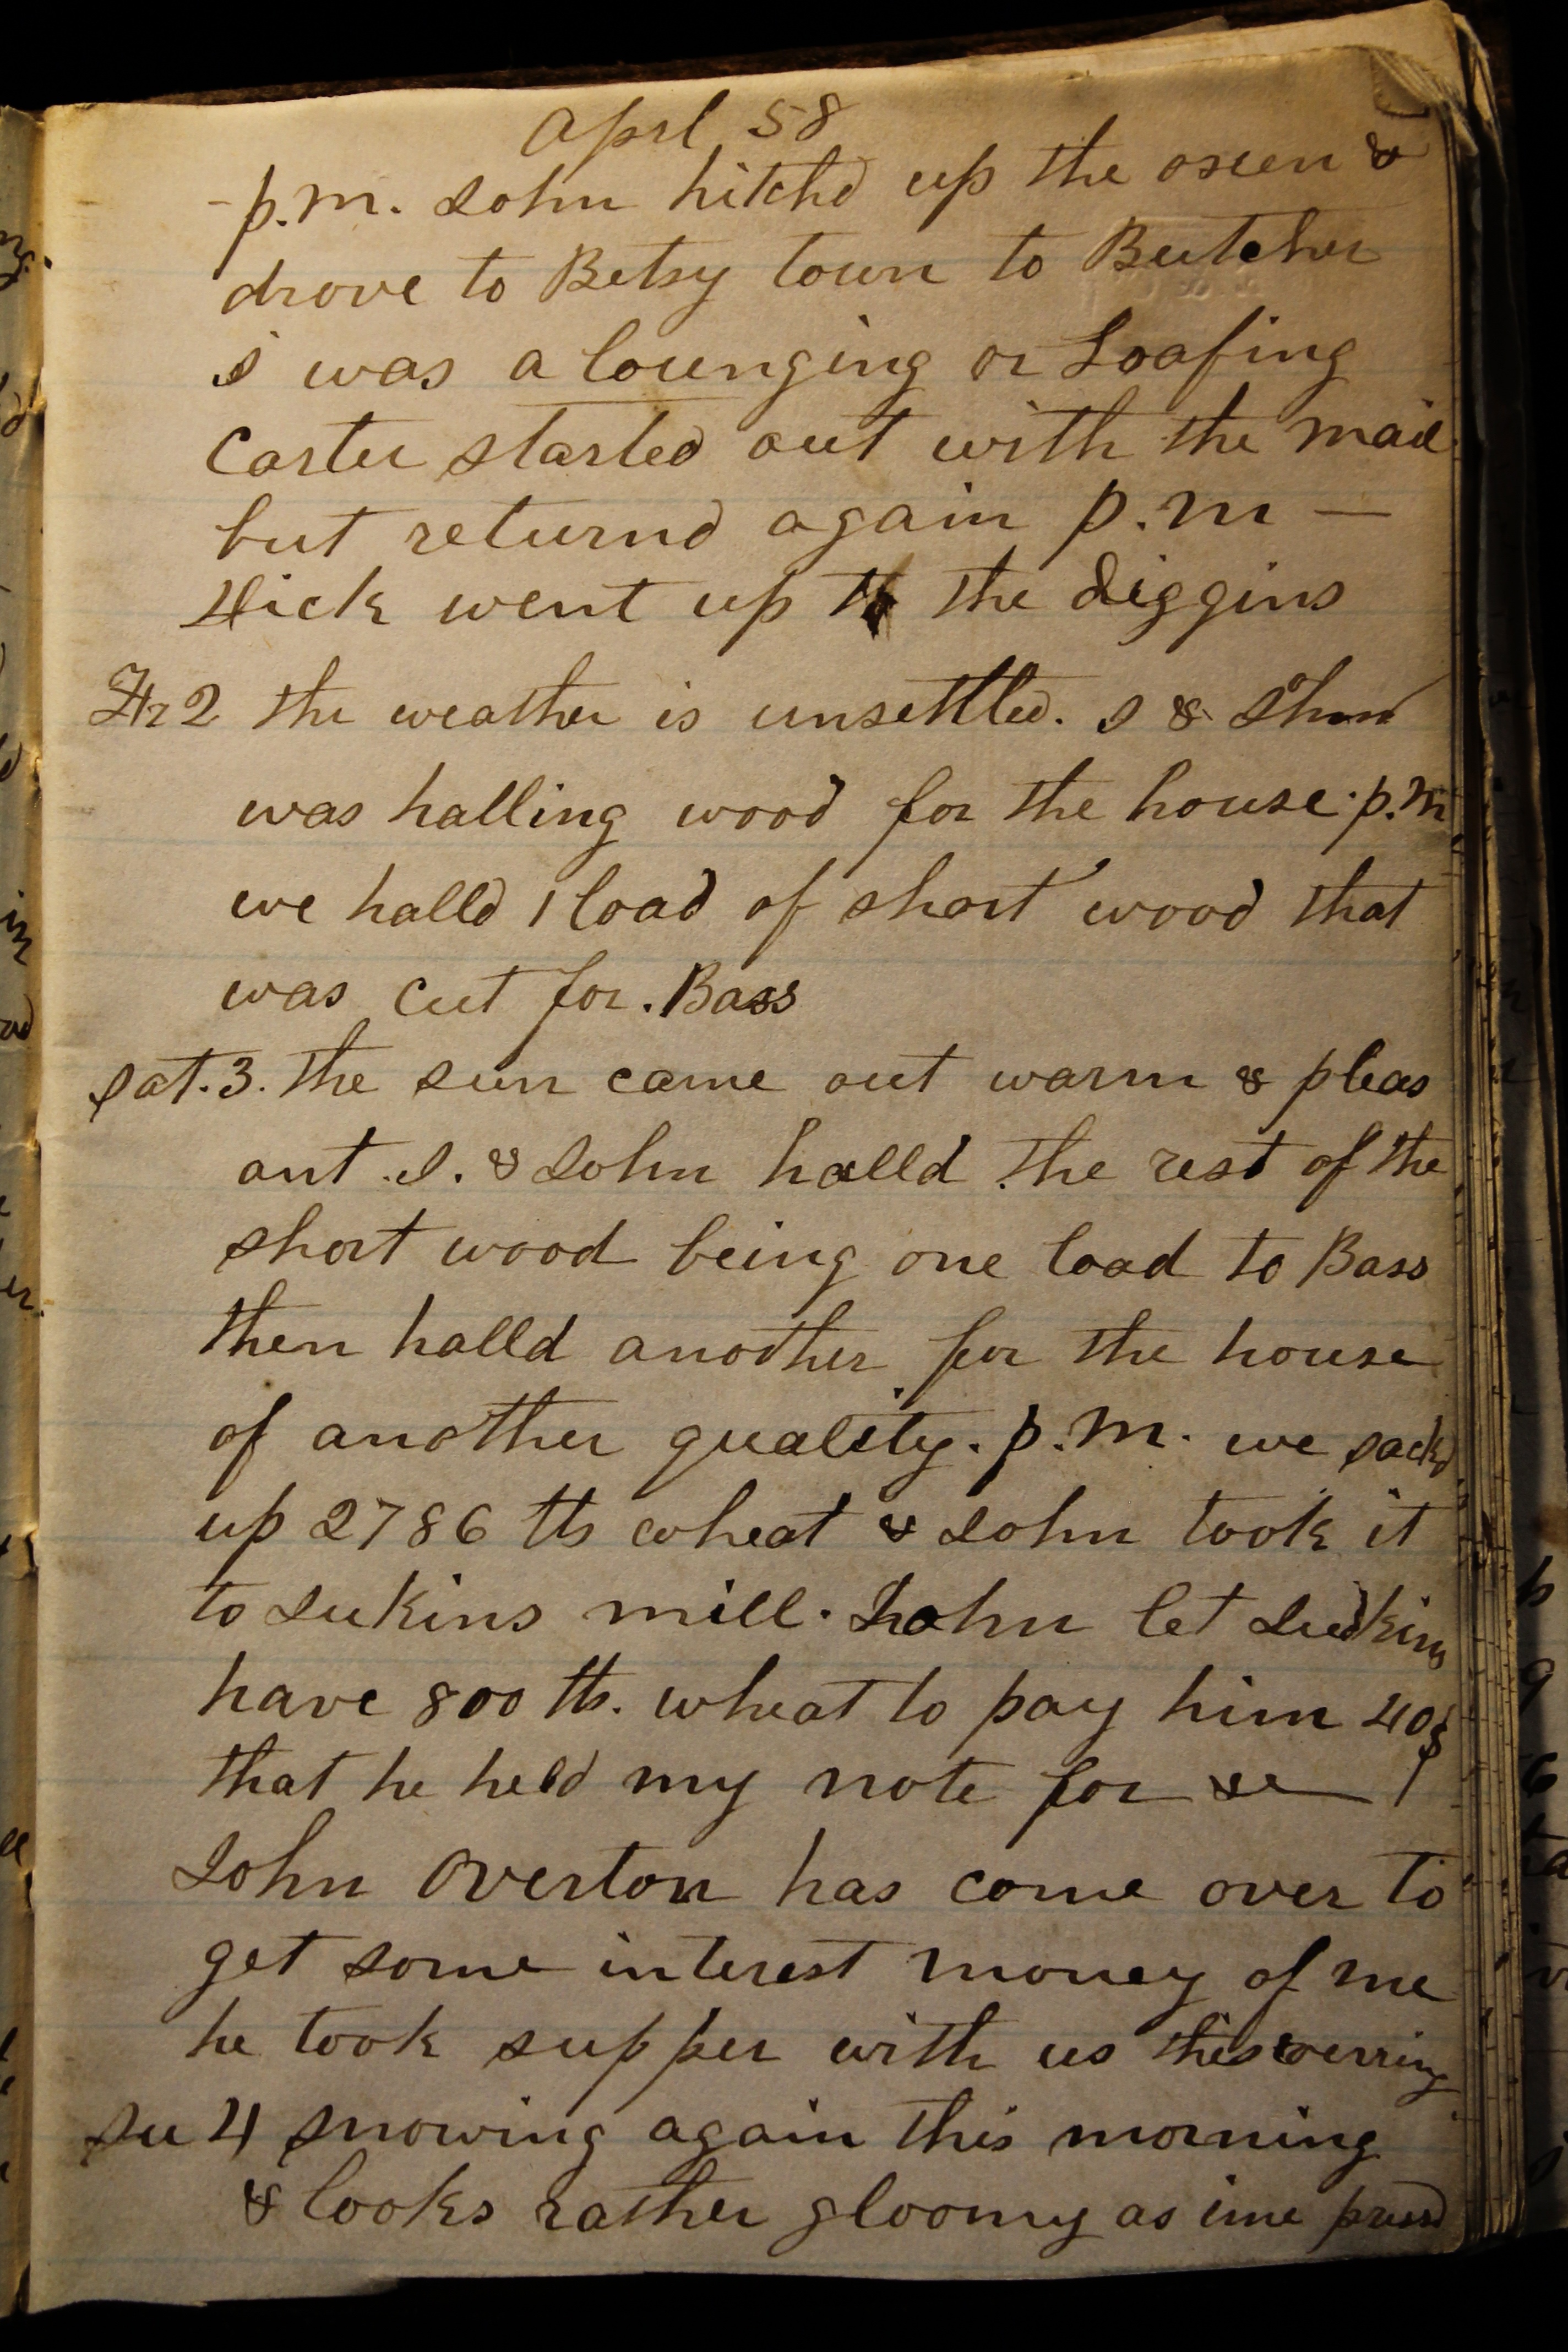 Aprl 58
- p.m. John hitchd up the oxen &
drove to Betsy town to Butcher
i was a lounging or Loafing
Carter started out with the mail
but returnd again p.m —
Dick went up to the diggins
Fr 2 the weather is unsettled. I & John
was halling wood for the house. p.m
we halld 1 load of short wood that
was cut for. Bass
Sat. 3. the sun came out warm & pleas
ant. I. & John halld the rest of the
short wood being one load to Bass
then halld another for the house
of another quality. p.m. we sackd
up 2786 lbs wheat & John took it
to Lukins mill. John let Ludkins
have 800 lb. wheat to pay him 40$
that he held my note for
John Overton has come over to
get some interest money of me
he took supper with us this evening
Su 4 Snowing again this morning
& looks rather gloomy as ime